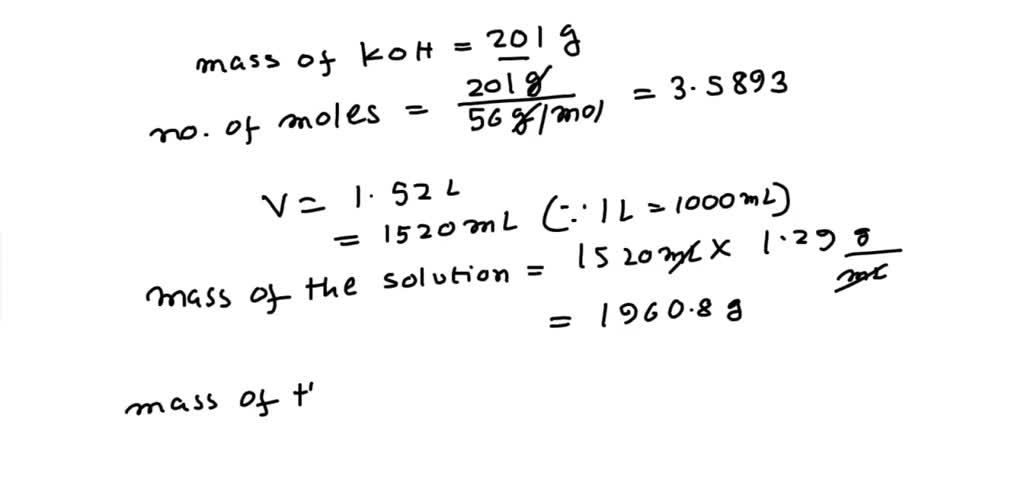 mass of KOH = 201 g
no. of moles = 201 g / 56 g/mol = 3.5893
V = 1.52 L
= 1520 mL (∵ 1 L = 1000 mL)
mass of the solution = 1520 mL × 1.29 g/mL
= 1960.8 g
mass of t'